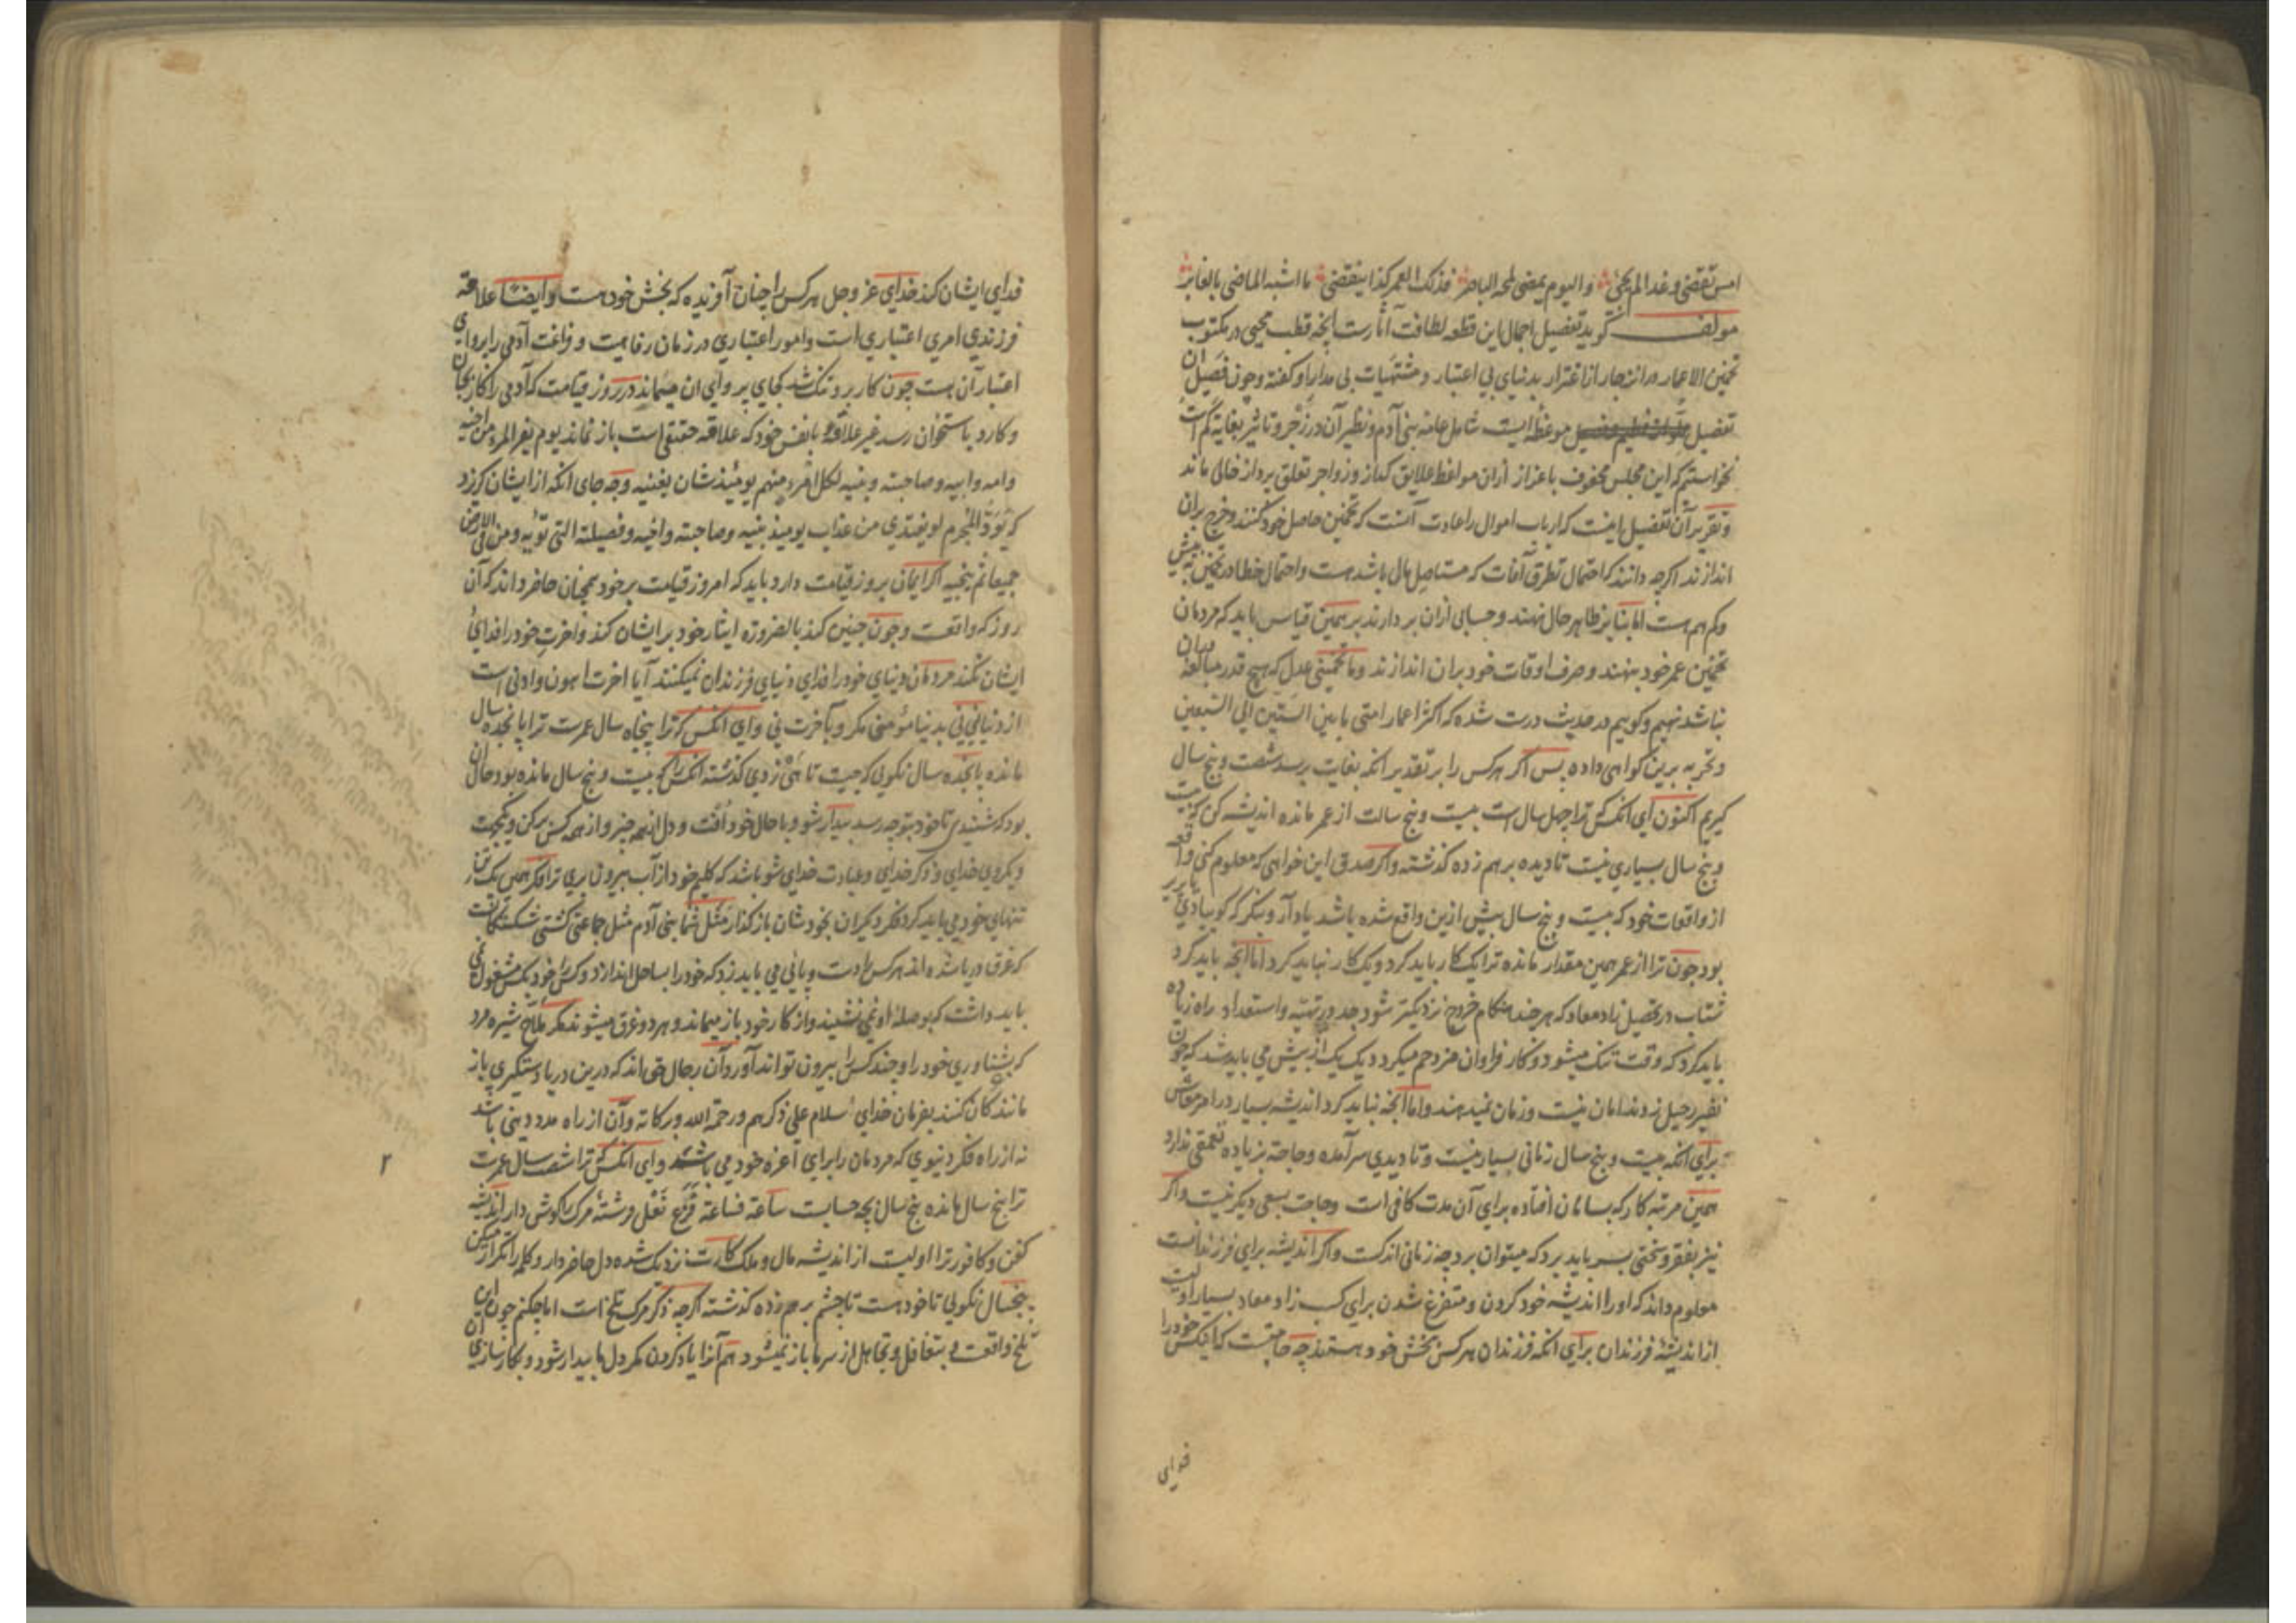 امس تقضی و غدا لم یجئ و الیوم یمضی لمحه الباصر فذلک العمر کذا ینقضی ما اشبه الماضی بالغابر
مولف گوید تفصیل اجمال این قطعه لطافت آثارست انچه قطب محیی در مکتوب
تخمین الاعمار در انزجار از اغترار بدنیای بی اعتبار و مشتهیات بی مدار او گفته و چون فصیل آن
تفصیل موعظه ایست شامل عامه بنی آدم و نظیر آن در زجر و تاثیر بغایة کم است
نخواستم که این مجلس محفوف باعزاز ازان مواعظ علایق گداز و زواجر تعلق پرداز خالی ماند
و تقریر آن تفصیل اینست که ارباب اموال را عادت آنست که تخمین حاصل خود کنند و خرج بران
اندازند اگرچه دانند که احتمال تطرق آفات که مستاصل مال باشد هست و احتمال خطا در تخمین به بیش
و کم هم هست اما بنا بر ظاهر حال نهند و حسابی ازان بر دارند بر همین قیاس باید که مردمان
تخمین عمر خود بنهند و صرف اوقات خود بران اندازند و ما تخمینی عدل که هیچ قدر مبالغه دران
نباشد نهیم و گوییم در حدیث درست شده که اکثر اعمار امتی ما بین الستین الی السبعین
و تجربه برین گواهی داده پس اگر هرکس را بر تقدیر انکه بغایت برسد شصت و پنج سال
گیریم اکنون ای انکس که ترا چهل سال است بیست و پنج سالت از عمر مانده اندیشه کن که بیست
و پنج سال بسیاری نیست تا دیده بر هم زده گذشته و اگر صدق این خواهی که معلوم کنی واقعه
از واقعات خود که بیست و پنج سال پیش ازین واقع شده باشد یاد آر و بنگر که گوییا دی یا پریر
بود چون ترا از عمر همین مقدار مانده ترا یک کار باید کرد و یک کار نباید کرد اما انچه باید کرد
شتاب در تحصیل زاد معاد که هر چند هنگام خروج نزدیکتر شود جد در تهیّه و استعداد راه زیاده
باید کرد که وقت تنگ میشود و کار فراوان مزدحم میگردد یک یک از پیش می باید شد که چون
نفیر رحیل زدند امان نیست و زمان نمیدهند و اما انچه نباید کرد اندیشه بسیار در امر معاش
برای انکه بیست و پنج سال زمانی بسیار نیست و تا دیدی سر آمده و حاجة بزیاده تعمقی ندارد
همین مرتبه کار که بسامان افتاده برای آن مدت کافی است و حاجت بسعی دیگر نیست و اگر
نیز بفقر و سختی بسر باید برد که میتوان برد چه زمانی اندکست و اگر اندیشه برای فرزندانست
معلوم داند که او را اندیشه خود کردن و متفرغ شدن برای کسب زاد معاد بسیار اولیست
از اندیشهٔ فرزندان برای انکه فرزندان هرکس بخش خود هستند چه حاجتست که انکس خود را
فدای
فدای ایشان کند خدای عز و جل هرکس را چنان آفریده که بخش خود هست و ایضا علاقه
فرزندی امری اعتباری است و امور اعتباری در زمان رفاهیت و فراغت آدمی را پروای
اعتبار آن هست چون کار برو تنگ شد کجای پروای آن میماند در روز قیامت که آدمی را کار بجان
و کارد باستخوان رسد غیر علاقه با نفس خود که علاقه حقیقی است باز نماند یوم یفر المرء من اخیه
و امه و ابیه و صاحبته و بنیه لکل امرء منهم یومئذ شان یغنیه و چه جای انکه از ایشان گریزد
که یودّ المجرم لو یفتدی من عذاب یومئذ ببنیه و صاحبته و اخیه و فصیلته التی تؤیه و من فی الارض
جمیعا ثم ینجیه اگر ایمان بروز قیامت دارد باید که امروز قیامت بر خود همچنان حاضر داند که آن
روز که واقعست و چون چنین کند بالضروره ایثار خود بر ایشان کند و اخرت خود را فدای
ایشان نکند مردمان دنیای خود را فدای دنیای فرزندان نمیکنند آیا اخرت اهون و ادنی است
از دنیا نی نی بدنیا مؤمنی مگر و بآخرت نی و ای انکس که ترا پنجاه سال عمرست ترا پانجده سال
مانده پانجده سال نگویی که چیست تا هَی زدی گذشته انکس را که بیست و پنج سال مانده بود حال آن
بود که شنیدی تا خود بتو چه رسد بیدار شو و با حال خود اُفت و دل از همه چیز و از همه کس بر کن و یکجهت
و یکروی خدای و ذکر خدای و عبادت خدای شو باشد که گلیم خود از آب بیرون بری ترا فکر همین یک تن
تنهای خود می باید کرد فکر دیگران بخودشان باز گذار مَثَل شما بنی آدم مثل جماعتی کشتی شکستگانست
که غرق دریا شده اند هرکس را دست و پائی می باید زد که خود را بساحل اندازد و کس را بخود یکس مشغول نمی
باید داشت که بوصله او نمی نشیند و از کار خود باز میماند و هر دو غرق میشوند مگر ملّاح شیره مرد
که بشناوری خود را و چند کس را بیرون تواند آورد و آن رجال حق اند که درین دریا دستگیری باز
ماندگان کنند بفرمان خدای سلام علی ذکرهم و رحمة الله و برکاته و آن از راه مدد دینی باشد
نه از راه فکر دنیوی که مردمان را برای اعزه خود می باشد و ای انکس که ترا شصت سال عمرست
ترا پنج سال مانده پنج سال بچه حسابست ساعة فساعة قرع نعل فرشتهٔ مرگ را گوش دار اندیشه
کفن و کافور ترا اولیست از اندیشه مال و ملک کارت نزدیک شده دل حاضر دار و کلمه را تکرار میکن
پنجسال نگویی تا خود هست تا چشم بر هم زده گذشته اگرچه ذکر مرگ تلخ است اما چکنم چون این
تلخ واقعست و بتغافل و تجاهل از سر ما باز نمیشود هم آنرا یاد کردن مگر دل ما بیدار شود و بکارسازی آن
۲